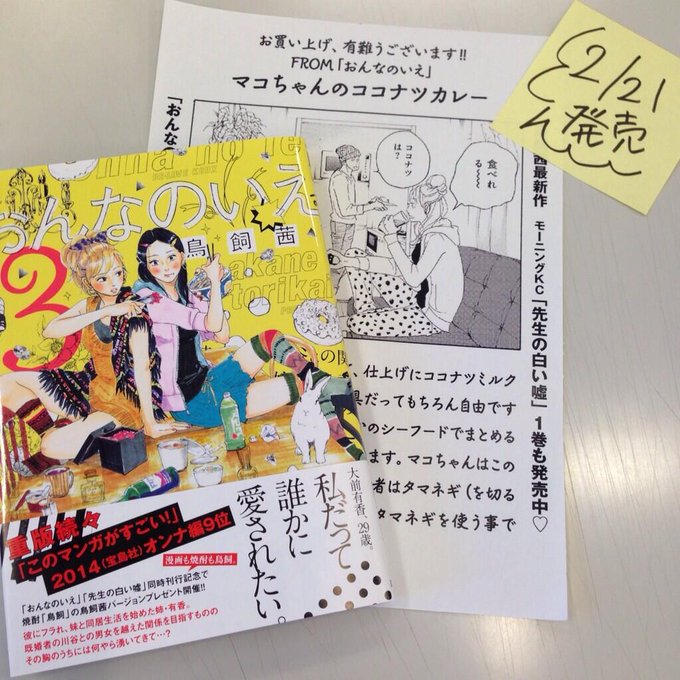 お買い上げ、有難うございます!!
FROM「おんなのいえ」
マコちゃんのココナツカレー
2/21
発売
「おんな
食べれ
る〜〜〜
ココナツ
は?
茜最新作 モーニングKC「先生の白い嘘」1巻も発売中♡
、仕上げにココナツミルク
具だってもちろん自由です
のシーフードでまとめる
ます。マコちゃんはこの
者はタマネギ(を切る
タマネギを使う事で
onna no ie
BE-LOVE KCDX
おんなのいえ
鳥飼茜
akane
torikai
3
大前有香、29歳。
私だって
誰かに
愛されたい。
重版続々
「このマンガがすごい!」
2014(宝島社)オンナ編9位
漫画も焼酎も鳥飼。
「おんなのいえ」「先生の白い嘘」同時刊行記念で
焼酎「鳥飼」の鳥飼茜バージョンプレゼント開催!!
彼にフラれ、妹と同居生活を始めた姉・有香。
既婚者の川谷との男女を越えた関係を目指すものの
その胸のうちには何やら湧いてきて…?